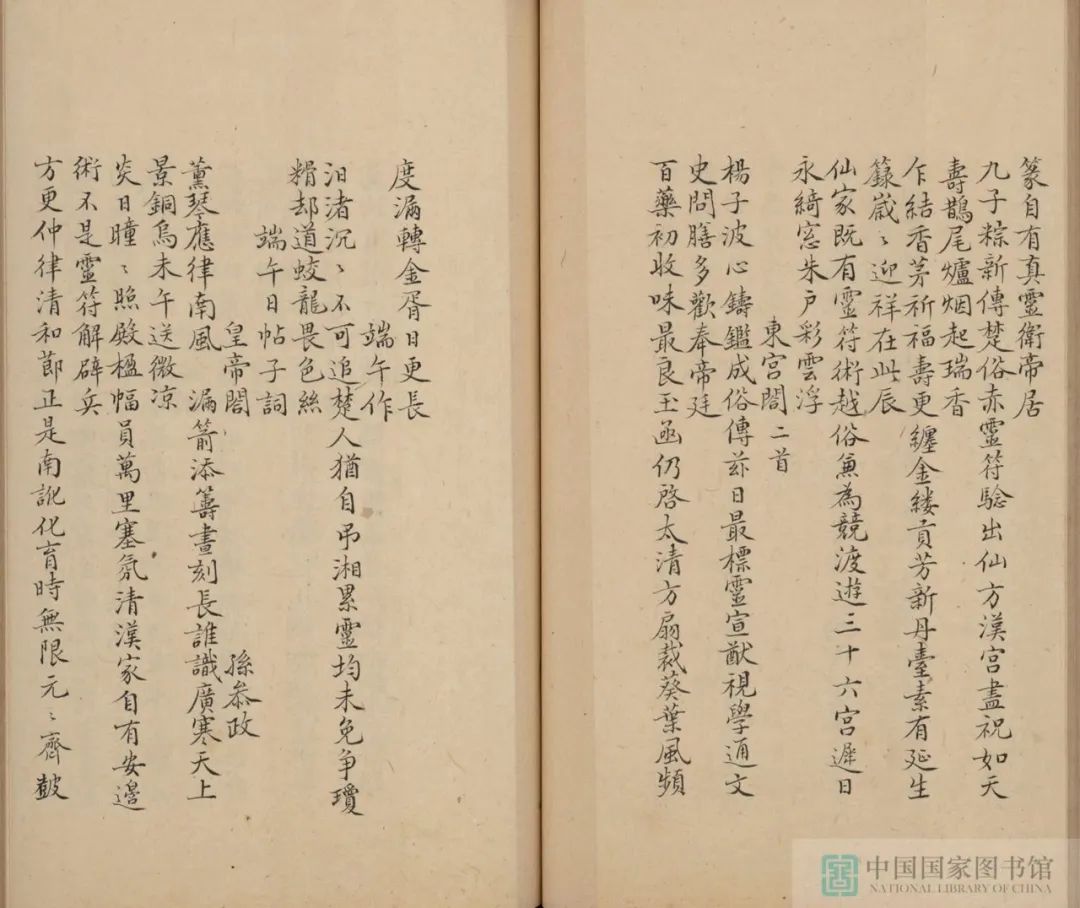 篆自有真靈衛帝居
九子粽新傳楚俗赤靈符驗出仙方漢宮盡祝如天
壽鵲尾爐烟起瑞香
乍結香茅祈福壽更纏金縷貢芳新丹臺素有延生
籙歲〻迎祥在此辰
仙家既有靈符術越俗兼為競渡遊三十六宮遲日
永綺窓朱戶彩雲浮
東宮閤二首
楊子波心鑄鑑成俗傳茲日最標靈宣猷視學通文
史問膳多歡奉帝廷
百藥初收味最良玉函仍啓太清方扇裁葵葉風頻
度漏轉金胥日更長
端午作
汨渚沉〻不可追楚人猶自弔湘累靈均未免爭瓊
糈却道蛟龍畏色絲
端午日帖子詞
皇帝閤 孫叅政
薰琴應律南風 漏箭添籌晝刻長誰識廣寒天上
景銅烏未午送微凉
炎日曈〻照殿楹幅員萬里塞氛清漢家自有安邊
術不是靈符解辟兵
方更仲律清和節正是南訛化育時無限元〻齊皷
中国国家图书馆
NATIONAL LIBRARY OF CHINA